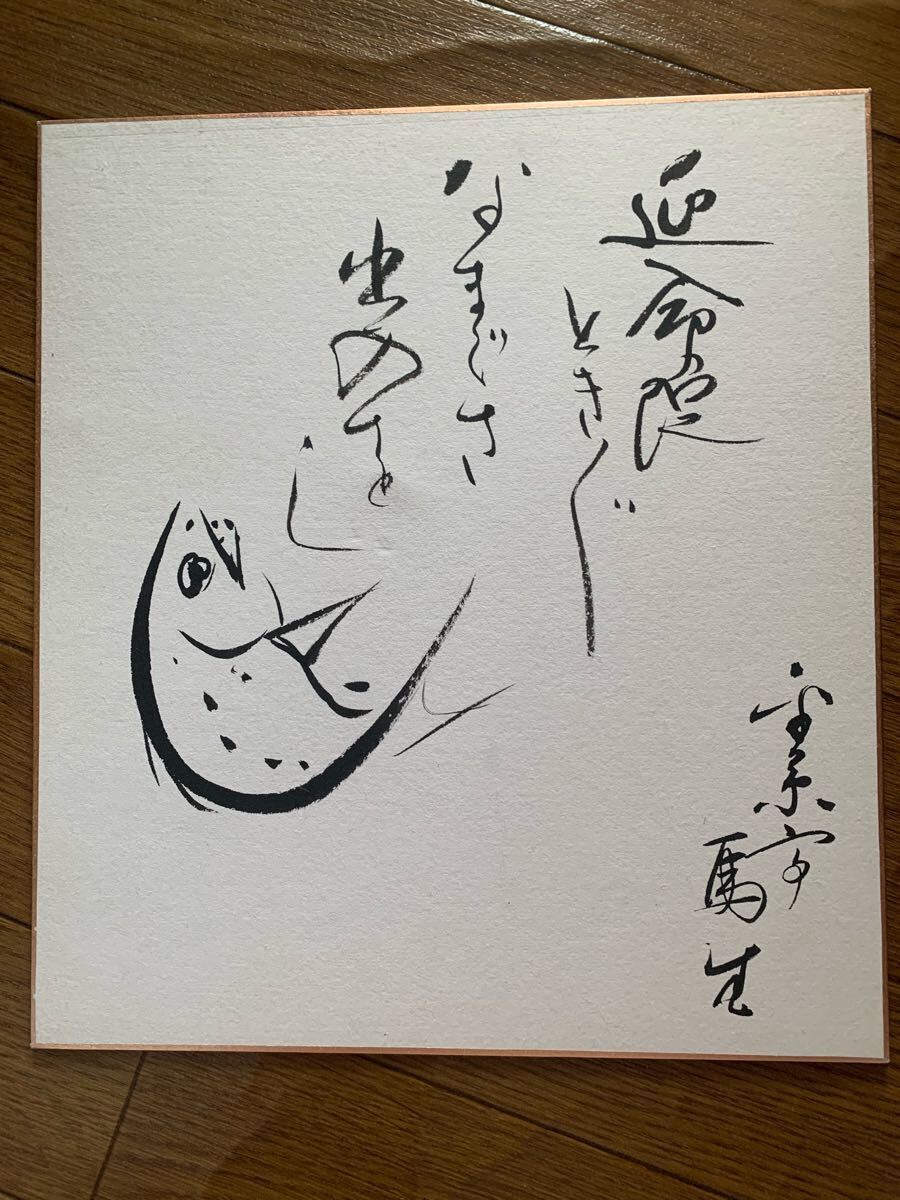 延命院
ときどき
なまぐさ
出入をし
金原亭
馬生